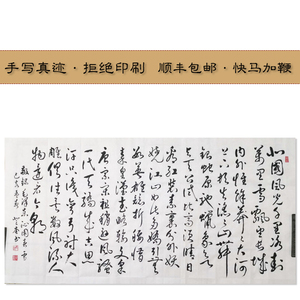 手写真迹·拒绝印刷 顺丰包邮·快马加鞭
北国风光千里冰封
万里雪飘望长城
内外惟余莽莽大河
上下顿失滔滔山舞
银蛇原驰蜡象欲
与天公试比高须晴日
看红装素裹分外妖
娆江山如此多娇引无
数英雄竞折腰惜
秦皇汉武略输文采
唐宗宋祖稍逊风骚
一代天骄成吉思
汗只识弯弓射大
雕俱往矣数风流人
物还看今朝
敬录毛泽东沁园春雪